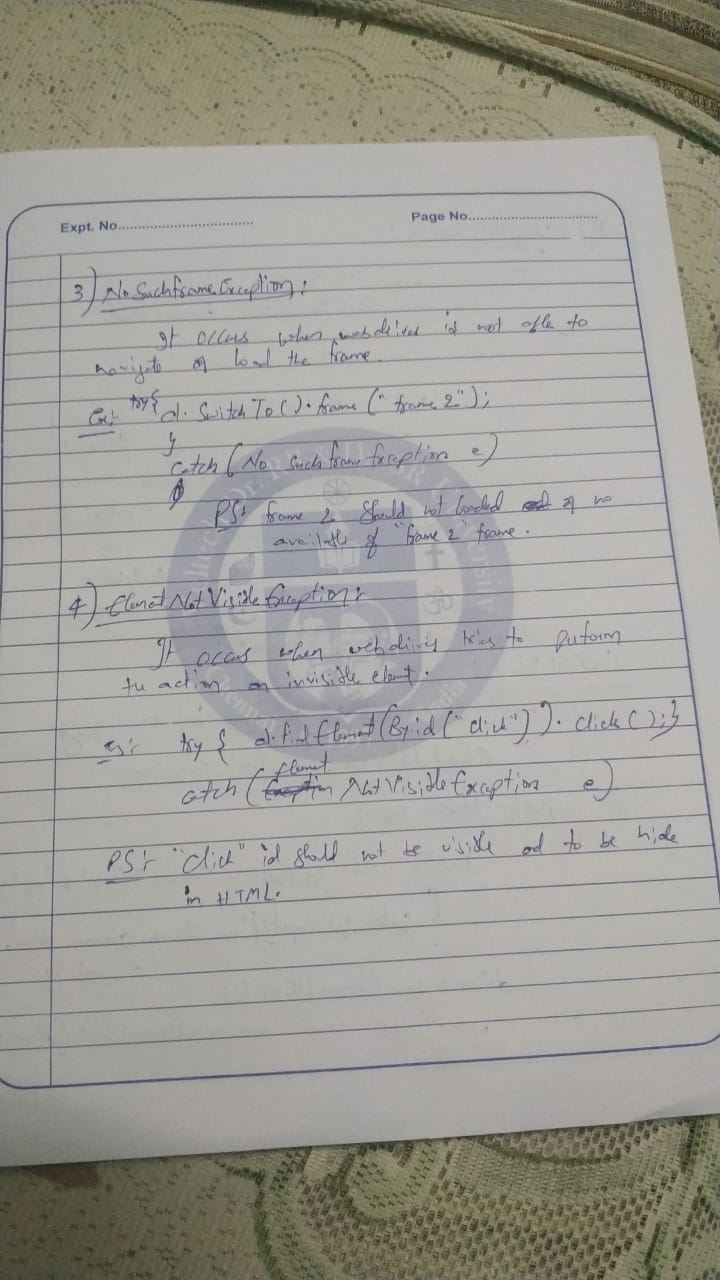 Expt. No.................................
Page No.................................
3) No Such frame Exception :
It occurs when webdriver is not able to
navigate or load the frame.
Ex:- try{ d. Switch To (). frame (" frame 2");
}
Catch (No Such frame Exception e)
PS: frame 2 Should not loaded or no
available of "frame 2" frame.
4) Element Not Visible Exception :-
It occurs when webdriver tries to perform
the action on invisible element.
Eg:- try { d. find Element (By. id (" click") ). click ( ); }
Element
catch ( Not Visible Exception e)
PS:- "Click" id should not be visible and to be hide
in HTML.